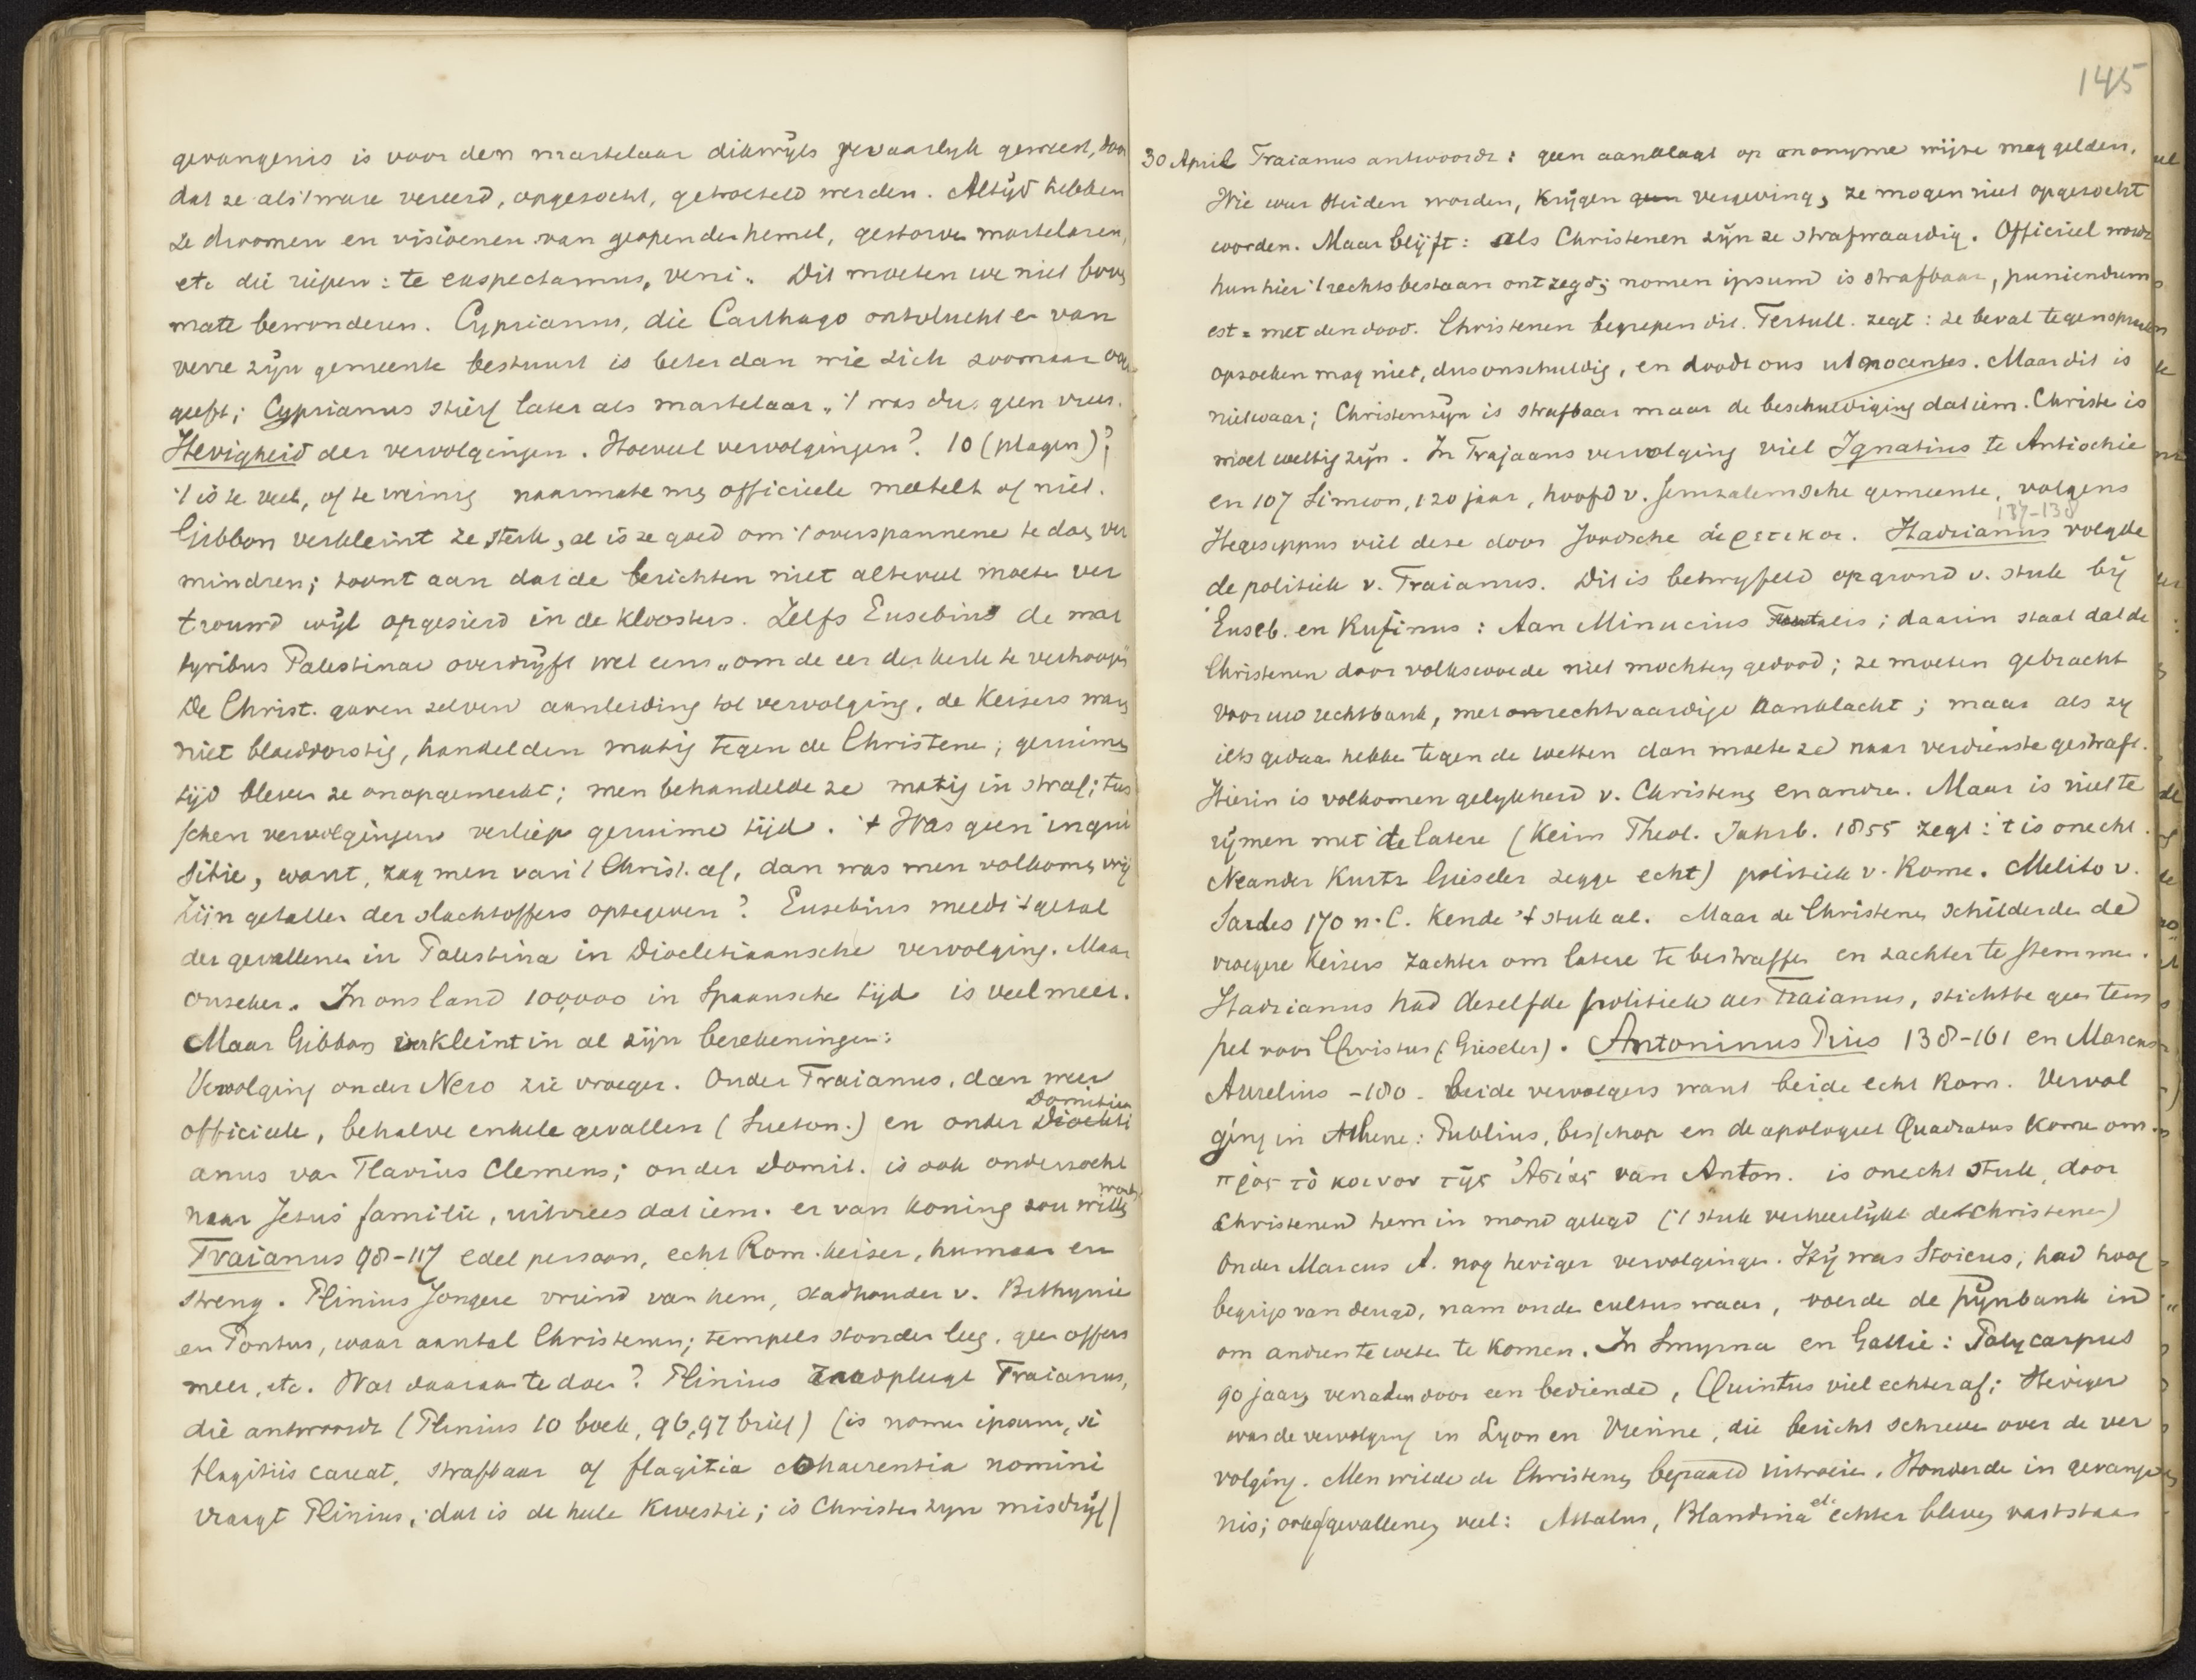 gevangenis is voor den martelaar dikwyls gevaarlyk geweest, door
dat ze als 't ware vereerd, opgezocht, getroeteld werden. Altyd hebben
ze droomen en visioenen van geopenden hemel, gestorven martelaren,
etc die riepen: te exspectamus, veni. Dit moeten we niet boven
mate bewonderen. Cyprianus, die Carthago ontvluchtte en van
verre zijn gemeente bestuurt is beter dan wie zich zoomaar over
geeft; Cyprianus stierf later als martelaar, 't was dus geen vrees.
Hevigheid der vervolgingen. Hoeveel vervolgingen? 10 (plagen)?
't is te veel, of te weinig naarmate men officieele meetelt of niet.
Gibbon verkleint ze sterk, al is ze goed om 't overspannene te doen ver
mindren; toont aan dat de berichten niet alteveel moeten ver
trouwd wijl opgesierd in de kloosters. Zelfs Eusebius de mar
tyribus Palestinae overdrijft wel eens "om de eer der kerk te verhoogen"
De Christ. gaven zelven aanleiding tot vervolging, de Keizers waren
niet bloeddorstig, handelden matig tegen de Christenen; geruimen
tijd bleven ze onopgemerkt; men behandelde ze matig in straf; tus
schen vervolgingen verliep geruime tijd. 't Was geen inqui
sitie, want, zag men van 't Christ. af, dan was men volkomen vrij
Zijn getallen der slachtoffers optegeven? Eusebius meldt 't getal
der gevallenen in Palestina in Diocletiaansche vervolging. Maar
onzeker. In ons land 100,000 in Spaansche tijd is veel meer.
Maar Gibbon verkleint in al zijn berekeningen:
Vervolging onder Nero zie vroeger. Onder Traianus, dan weer
Domitia
officieele, behalve enkele gevallen (Sueton.) en onder Diocleti
anus van Flavius Clemens; onder Domit. is ook onderzocht
naar Jezus' familie, uit vrees dat iem. er van koning zou willen
worden
Traianus 98-117 edel persoon, echt Rom. keizer, humaan en
streng. Plinius Jongere vriend van hem, stadhouder v. Bithynie
en Pontus, waar aantal Christenen; tempels stonden leeg, geen offers
meer, etc. Wat daaraan te doen? Plinius raadpleegt Traianus,
die antwoordt (Plinius 10 boek, 96, 97 brief) (is nomen ipsum, si
flagitiis careat, strafbaar of flagitia cohaerentia nomini
vraagt Plinius, dat is de heele kwestie; is Christen zyn misdrijf)
145
30 April Traianus antwoordt: geen aanklacht op anonyme wijze mag gelden,
Wie weer Heiden worden, krijgen geen vergeving, ze mogen niet opgezocht
worden. Maar blijft: als Christenen zijn ze strafwaardig. Officieel wordt
hun hier 't rechtsbestaan ontzegd; nomen ipsum is strafbaar, puniendum
est = met den dood. Christenen begrepen dit. Tertull. zegt: ze beval tegenspreken
opzoeken mag niet, dus onschuldig, en doodt ons ut nocentes. Maar dit is
niet waar; Christenzijn is strafbaar maar de beschuldiging dat iem. Christen is
moet wettig zijn. In Trajaans vervolging viel Ignatius te Antiochie
en 107 Simeon, 120 jaar, hoofd v. Jeruzalemsche gemeente, volgens
137-138
Hegesippus viel deze door Joodsche αἱρετικοι. Hadrianus volgde
de politiek v. Traianus. Dit is betwyfeld op grond v. stuk bij
Euseb. en Rufinus: Aan Minucius ; daarin staat dat de
Christenen door volkswoede niet mochten gedood; ze moeten gebracht
voor uw rechtbank, met onrechtvaardige aanklacht; maar als zy
iets gedaan hebben tegen de wetten dan moeten ze naar verdienste gestraft.
Hierin is volkomen gelykheid v. Christenen en andren. Maar is niet te
rijmen met de latere (Keim Theol. Jahrb. 1855 zegt: 't is onecht.
Neander Kurtz Gieseler zeggen echt) politiek v. Rome. Melito v.
Sardes 170 n. C. kende 't stuk al. Maar de Christenen schilderden de
vroegere keizers zachter om latere te bestraffen en zachter te stemmen.
Hadrianus had dezelfde politiek als Traianus, stichtte geen tem
pel voor Christus (Gieseler). Antoninus Pius 138-161 en Marcus
Aurelius -180. beide vervolgers want beide echt Rom. Vervol
ging in Athene: Publius, bisschop en de apologeet Quadratus komen om.
προς τὸ κοινον τῆς Ἀσίας van Anton. is onecht stuk, door
Christenen hem in mond gelegd ('t stuk verheerlijkt de Christenen)
Onder Marcus A. nog heviger vervolgingen. Hij was Stoicus, had hoog
begrip van deugd, nam onde cultus waar, voerde de pijnbank in
om andren te weten te komen. In Smyrna en Gallie: Polycarpus
90 jaar, verraden door een bediende, Quintus viel echter af; Heviger
was de vervolging in Lyon en Vienne, die bericht schreven over de ver
volging. Men wilde de Christenen bepaald uitroeien. Honderden in gevange
nis; ook afgevallenen veel: Attalus, Blandina etc echter bleven vaststaan